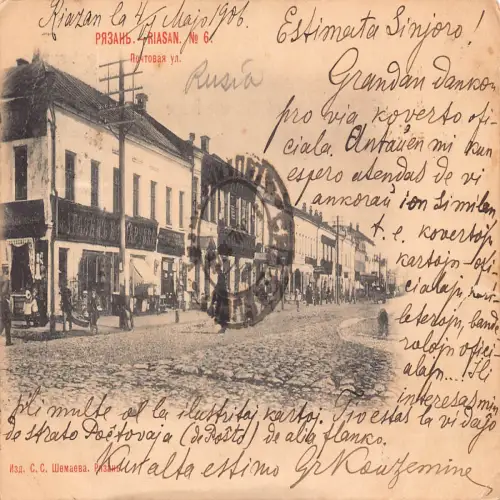 Riazan la 4/V Majo 1906.
РЯЗАНЬ. RIASAN. № 6.
Почтовая ул.
Rusia
Estimata Sinjoro!
Grandan dankon
pro via koverto ofi-
ciala. Antaŭen mi kun
espero atendas de vi
ankoraŭ ion similan
t. e. kovertoj
kartojn ofi-
cialajn,
leterojn, band
rolojn ofici
alajn....! Ili
interesas min
pli multe ol la ilustritaj kartoj. Tio estas la vidaĵo
de strato Poĉtovaja (de Poŝto) de alia flanko.
Kun alta estimo
Изд. С. С. Шемаева. Рязань